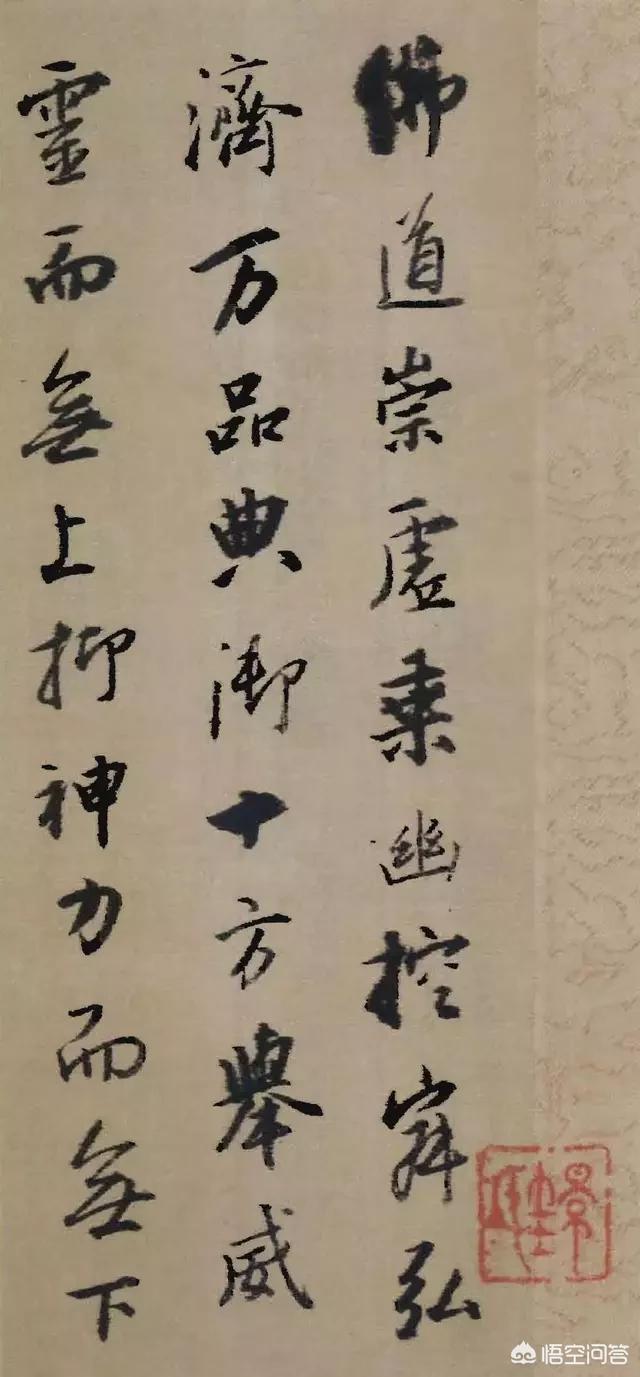 佛道崇虚乗幽控寂弘
濟万品典御十方舉威
靈而無上抑神力而無下
悟空问答